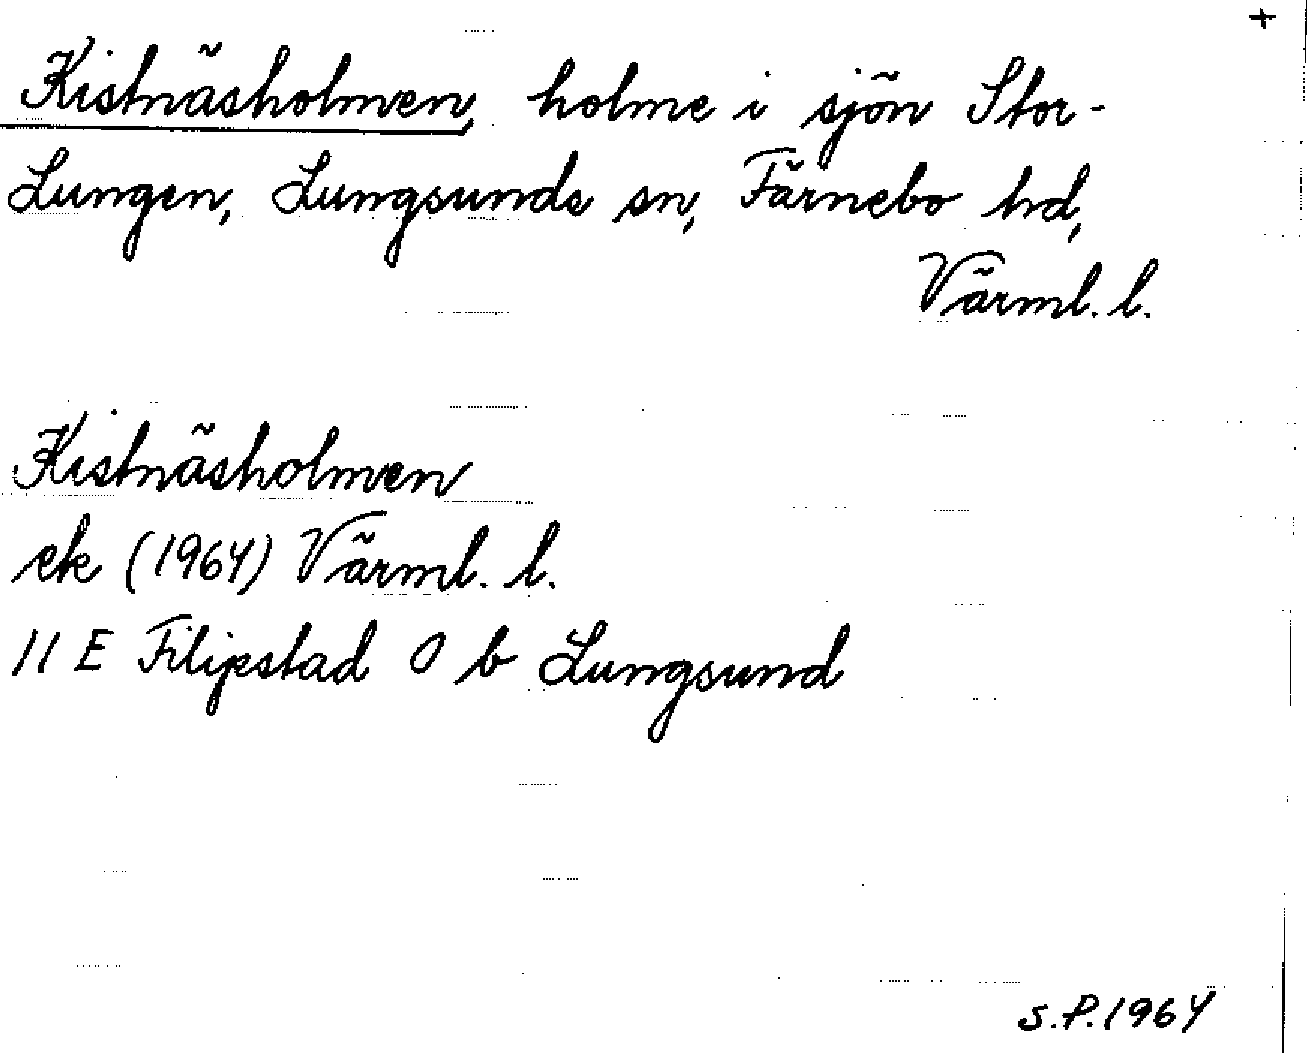 +
Kistnäsholmen, holme i sjön Stor-
Lungen, Lungsunds sn, Färnebo hd,
Värml. l.
Kistnäsholmen
ek (1964) Värml. l.
11 E Filipstad 0 b Lungsund
S.P. 1964